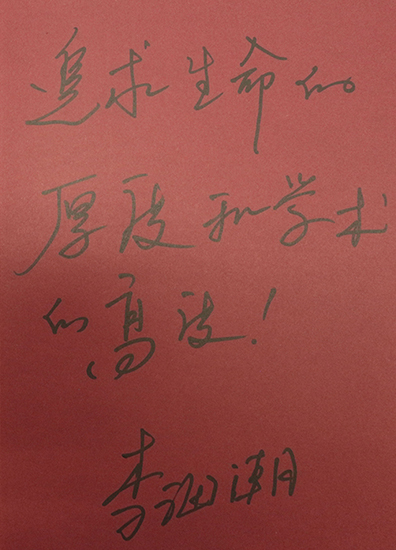 追求生命的
厚度和学术
的高度！
李潮